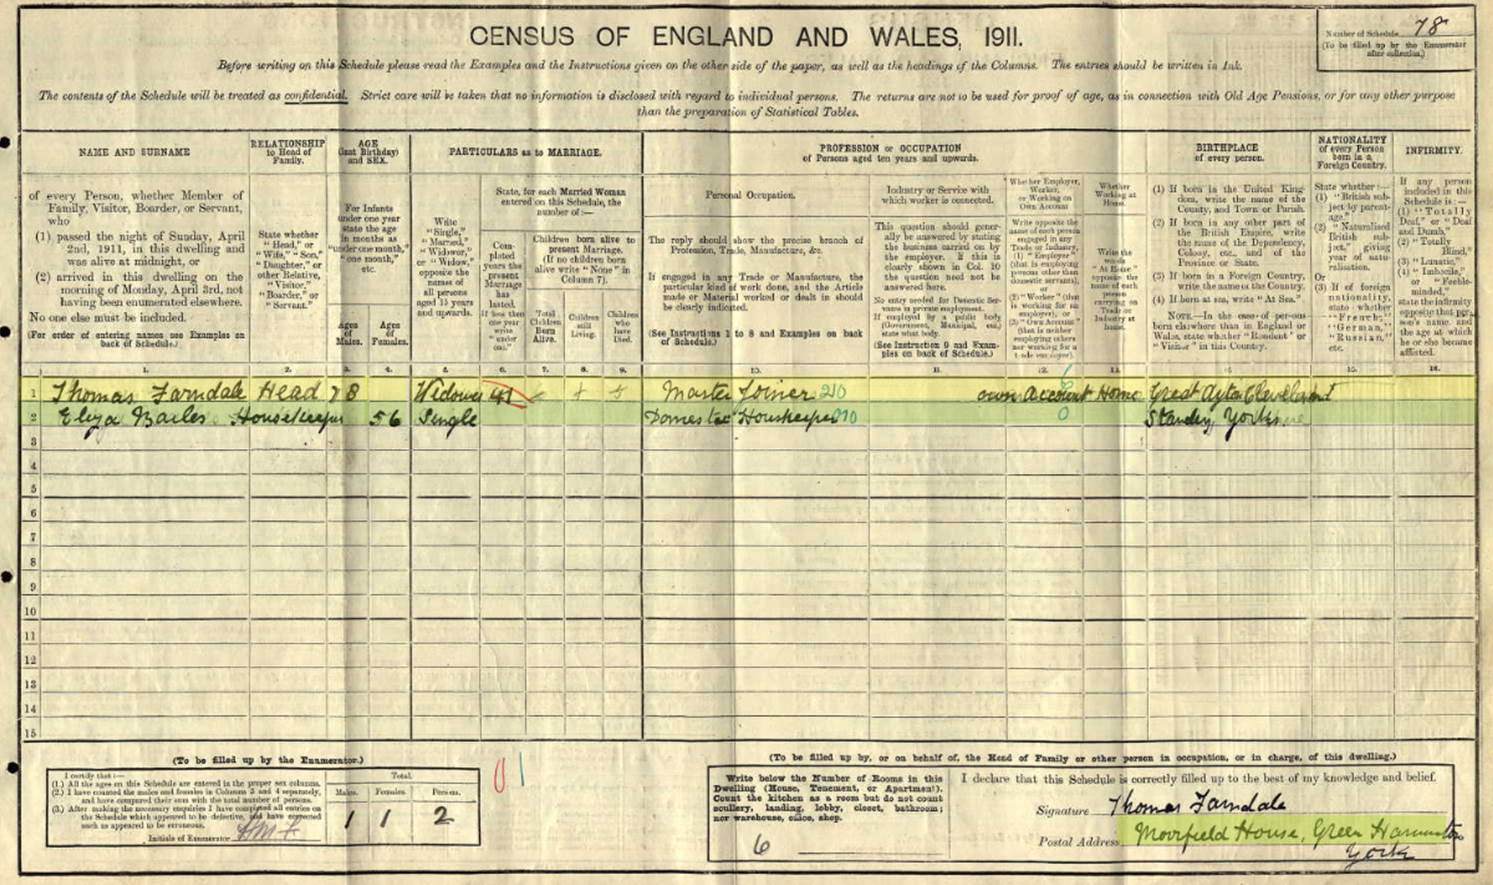 CENSUS OF ENGLAND AND WALES, 1911.
Number of Schedule 78
(To be filled up by the Enumerator
after collection.)
Before writing on this Schedule please read the Examples and the Instructions given on the other side of the paper, as well as the headings of the Columns. The entries should be written in Ink.
The contents of the Schedule will be treated as confidential. Strict care will be taken that no information is disclosed with regard to individual persons. The returns are not to be used for proof of age, as in connection with Old Age Pensions, or for any other purpose
than the preparation of Statistical Tables.
NAME AND SURNAME
of every Person, whether Member of
Family, Visitor, Boarder, or Servant,
who
(1) passed the night of Sunday, April
2nd, 1911, in this dwelling and
was alive at midnight, or
(2) arrived in this dwelling on the
morning of Monday, April 3rd, not
having been enumerated elsewhere.
No one else must be included.
(For order of entering names see Examples on
back of Schedule.)
RELATIONSHIP
to Head of
Family.
State whether
"Head," or
"Wife," "Son,"
"Daughter," or
other Relative,
"Visitor,"
"Boarder," or
"Servant."
AGE
(last Birthday)
and SEX.
For Infants
under one year
state the age
in months as
"under one month,"
"one month,"
etc.
Ages
of
Males.
Ages
of
Females.
PARTICULARS as to MARRIAGE.
Write
"Single,"
"Married,"
"Widower,"
or "Widow,"
opposite the
names of
all persons
aged 15 years
and upwards.
State, for each Married Woman
entered on this Schedule, the
number of:—
Completed
years the
present
Marriage
has
lasted.
If less than
one year
write
"under
one."
Children born alive to
present Marriage.
(If no children born
alive write "None" in
Column 7).
Total
Children
Born
Alive.
Children
still
Living.
Children
who
have
Died.
PROFESSION or OCCUPATION
of Persons aged ten years and upwards.
Personal Occupation.
The reply should show the precise branch of
Profession, Trade, Manufacture, &c.
If engaged in any Trade or Manufacture, the
particular kind of work done, and the Article
made or Material worked or dealt in should
be clearly indicated.
(See Instructions 1 to 8 and Examples on back
of Schedule.)
Industry or Service with
which worker is connected.
This question should gener-
ally be answered by stating
the business carried on by
the employer. If this is
clearly shown in Col. 10
the question need not be
answered here.
No entry needed for Domestic Ser-
vants in private employment.
If employed by a public body
(Government, Municipal, etc.)
state what body.
(See Instruction 9 and Exam-
ples on back of Schedule.)
Whether Employer,
Worker,
or Working on
Own Account
Write opposite the
name of each person
engaged in any
Trade or Industry,
(1) "Employer"
(that is employing
persons other than
domestic servants),
or
(2) "Worker" (that
is working for an
employer), or
(3) "Own Account"
(that is neither
employing others
nor working for a
trade employer).
Whether
Working at
Home.
Write the
words
"At Home"
opposite the
name of each
person
carrying on
Trade or
Industry at
home.
BIRTHPLACE
of every person.
(1) If born in the United King-
dom, write the name of the
County, and Town or Parish.
(2) If born in any other part of
the British Empire, write
the name of the Dependency,
Colony, etc., and of the
Province or State.
(3) If born in a Foreign Country,
write the name of the Country.
(4) If born at sea, write "At Sea."
NOTE.—In the case of persons
born elsewhere than in England or
Wales, state whether "Resident" or
"Visitor" in this Country.
NATIONALITY
of every Person
born in a
Foreign Country.
State whether:—
(1) "British sub-
ject by parent-
age,"
(2) "Naturalised
British sub-
ject," giving
year of natu-
ralisation.
Or
(3) If of foreign
nationality,
state whether
"French,"
"German,"
"Russian,"
etc.
INFIRMITY.
If any person
included in this
Schedule is:—
(1) "Totally
Deaf," or "Deaf
and Dumb,"
(2) "Totally
Blind,"
(3) "Lunatic,"
(4) "Imbecile,"
or "Feeble-
minded,"
state the infirmity
opposite that per-
son's name, and
the age at which
he or she became
afflicted.
1. 2. 3. 4. 5. 6. 7. 8. 9. 10. 11. 12. 13. 14. 15. 16.
1 Thomas Farndale Head 78 Widower 41 Master Joiner 210 own Account Home Great Ayton Cleveland
2 Eliza Bailes Housekeeper 56 Single Domestic Houskeeper 010 0 Yorks
3
4
5
6
7
8
9
10
11
12
13
14
15
(To be filled up by the Enumerator.)
I certify that:—
(1.) All the ages on this Schedule are entered in the proper sex columns.
(2.) I have counted the males and females in Columns 3 and 4 separately,
and have compared their sum with the total number of persons.
(3.) After making the necessary enquiries I have completed all entries on
the Schedule which appeared to be defective, and have corrected
such as appeared to be erroneous.
Initials of Enumerator
Total.
Males. Females. Persons.
1 1 2
01
(To be filled up by, or on behalf of, the Head of Family or other person in occupation, or in charge, of this dwelling.)
Write below the Number of Rooms in this
Dwelling (House, Tenement, or Apartment).
Count the kitchen as a room but do not count
scullery, landing, lobby, closet, bathroom;
nor warehouse, office, shop.
6
I declare that this Schedule is correctly filled up to the best of my knowledge and belief.
Signature Thomas Farndale
Postal Address Moorfield House, Green Hammerton
York